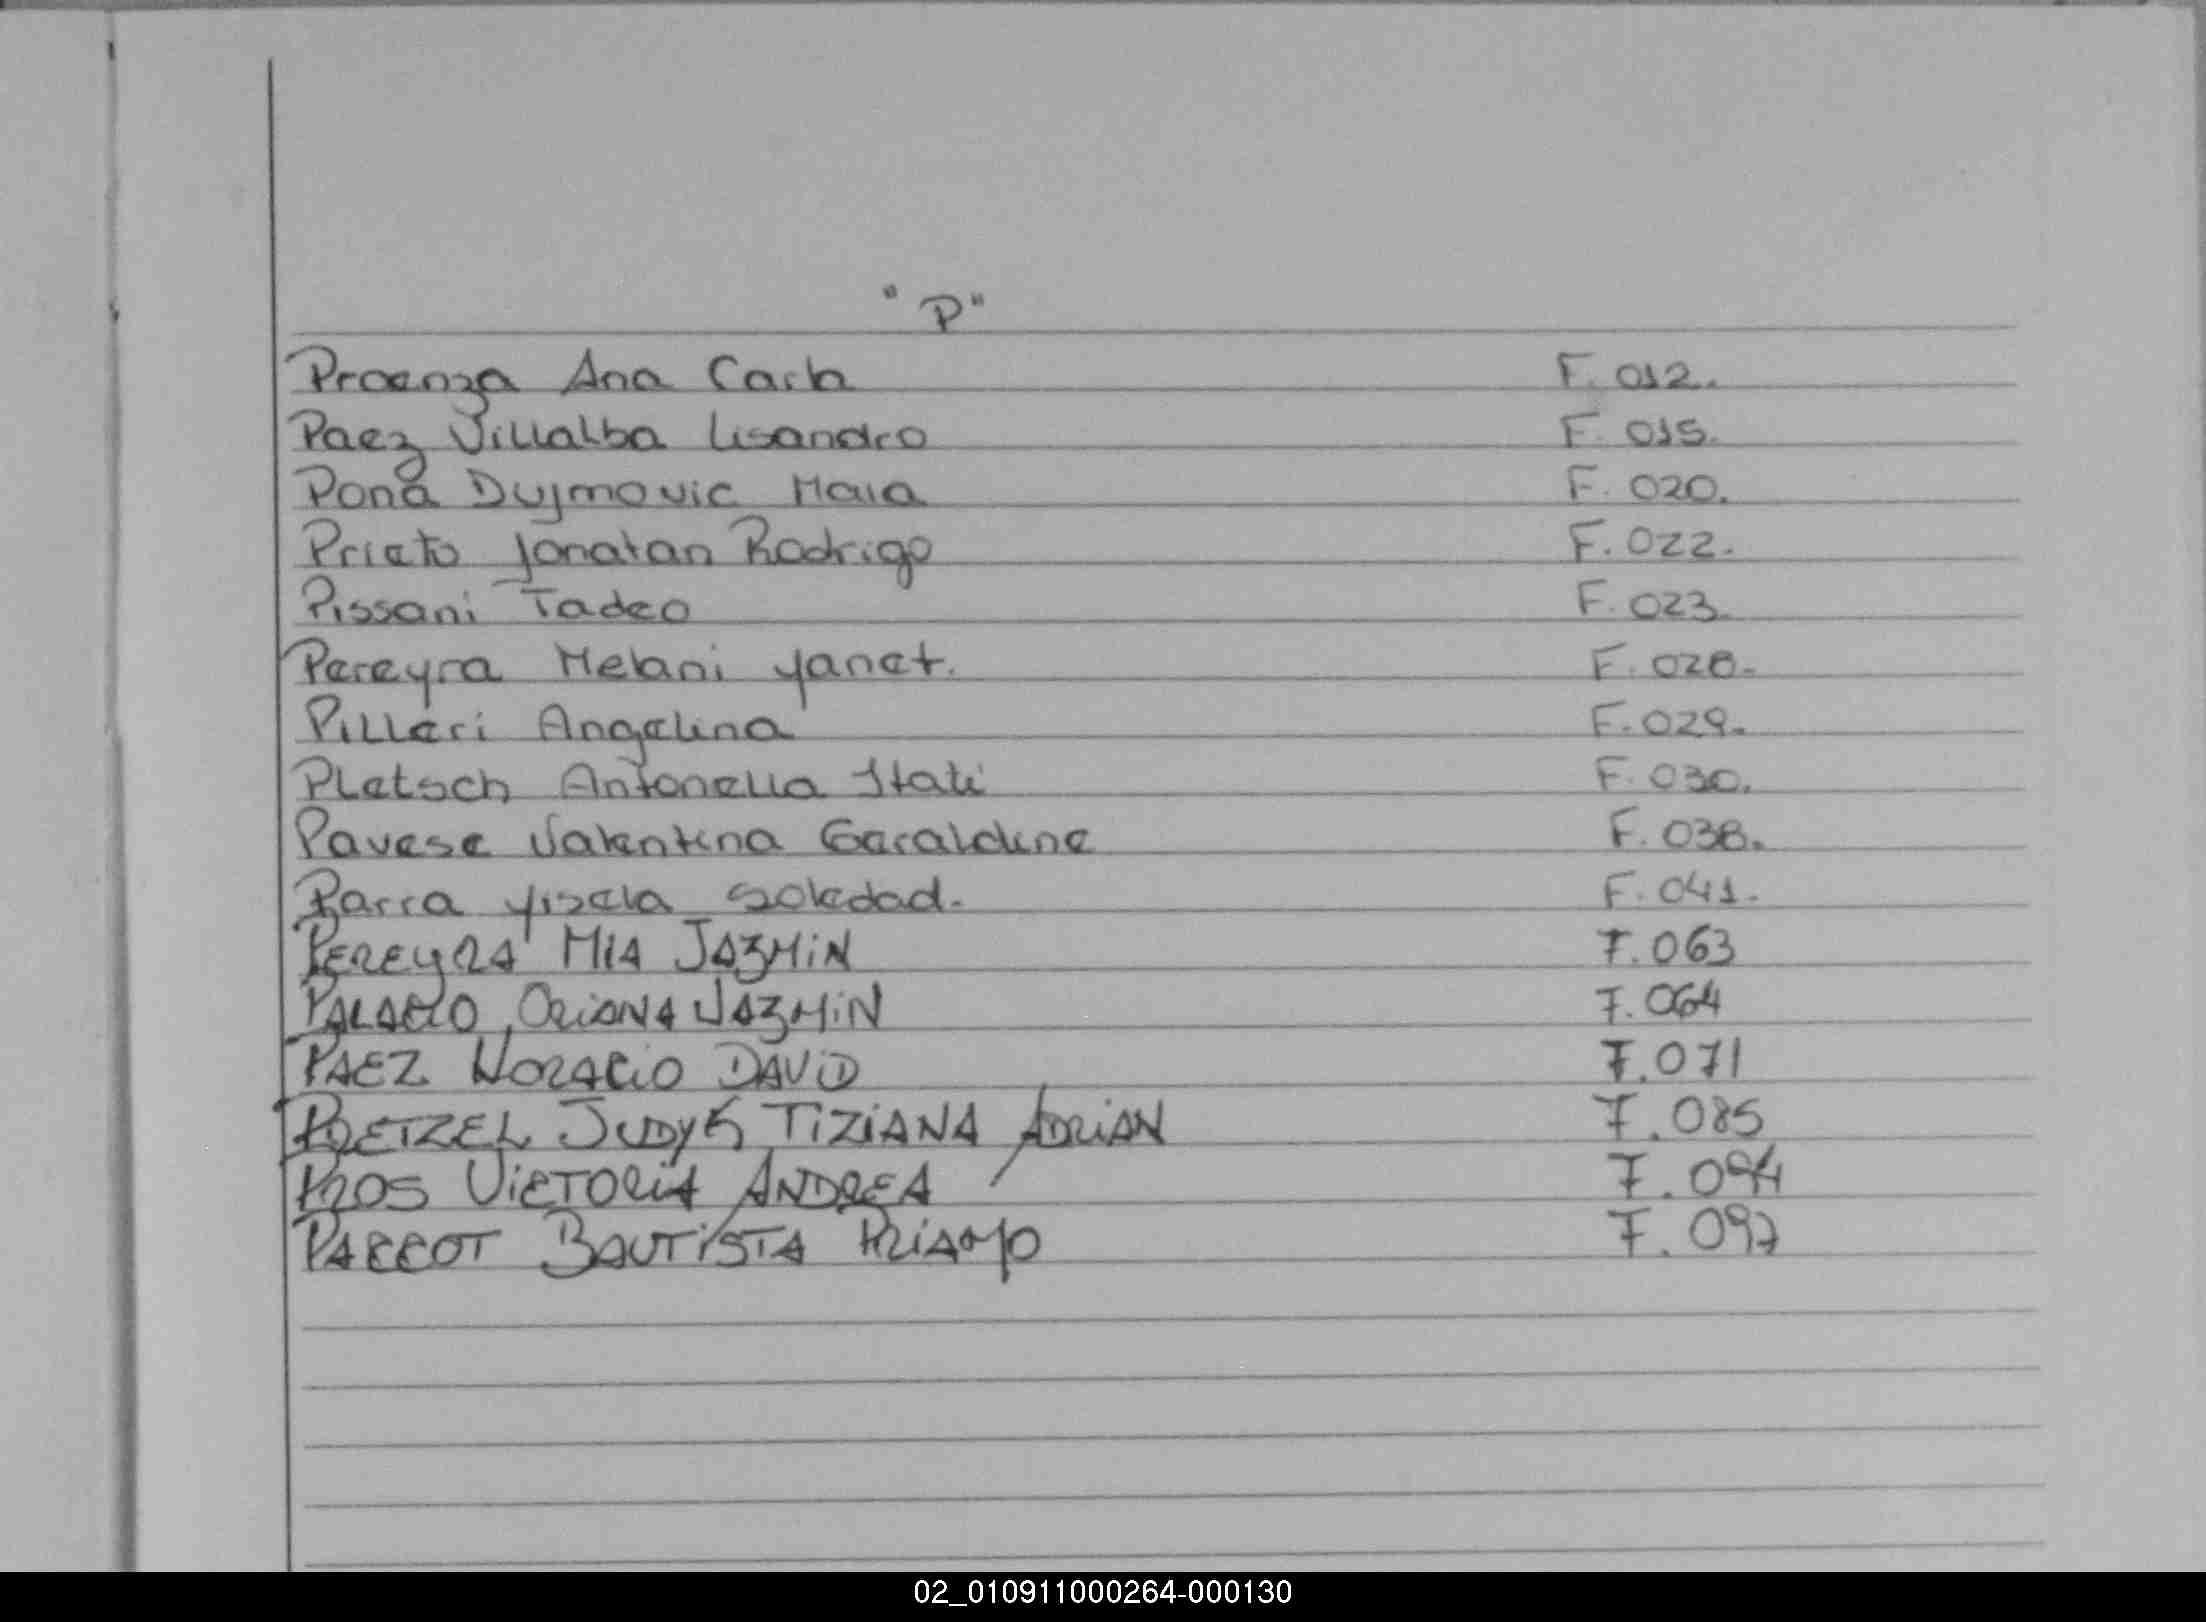 "P"
Proenza Ana Carla F. 012.
Paez Villalba Lisandro F. 015.
Pona Dujmovic Maia F. 020.
Prieto Jonatan Rodrigo F. 022.
Pissani Tadeo F. 023.
Pereyra Melani Yanet. F. 028.
Pilleri Angelina F. 029.
Pletsch Antonella Itati F. 030.
Pavese Valentina Geraldine F. 038.
Parra Yisela Soledad. F. 041.
PEREYRA MIA JAZMiN F. 063
PALACiO ORiANA JAZMiN F. 064
PAEZ HORACiO DAViD F. 071
POETZEL TiZiANA ADRiAN F. 085
PROS ViCTORiA ANDREA F. 094
BAUTiSTA PRiAMO F. 097
02_010911000264-000130